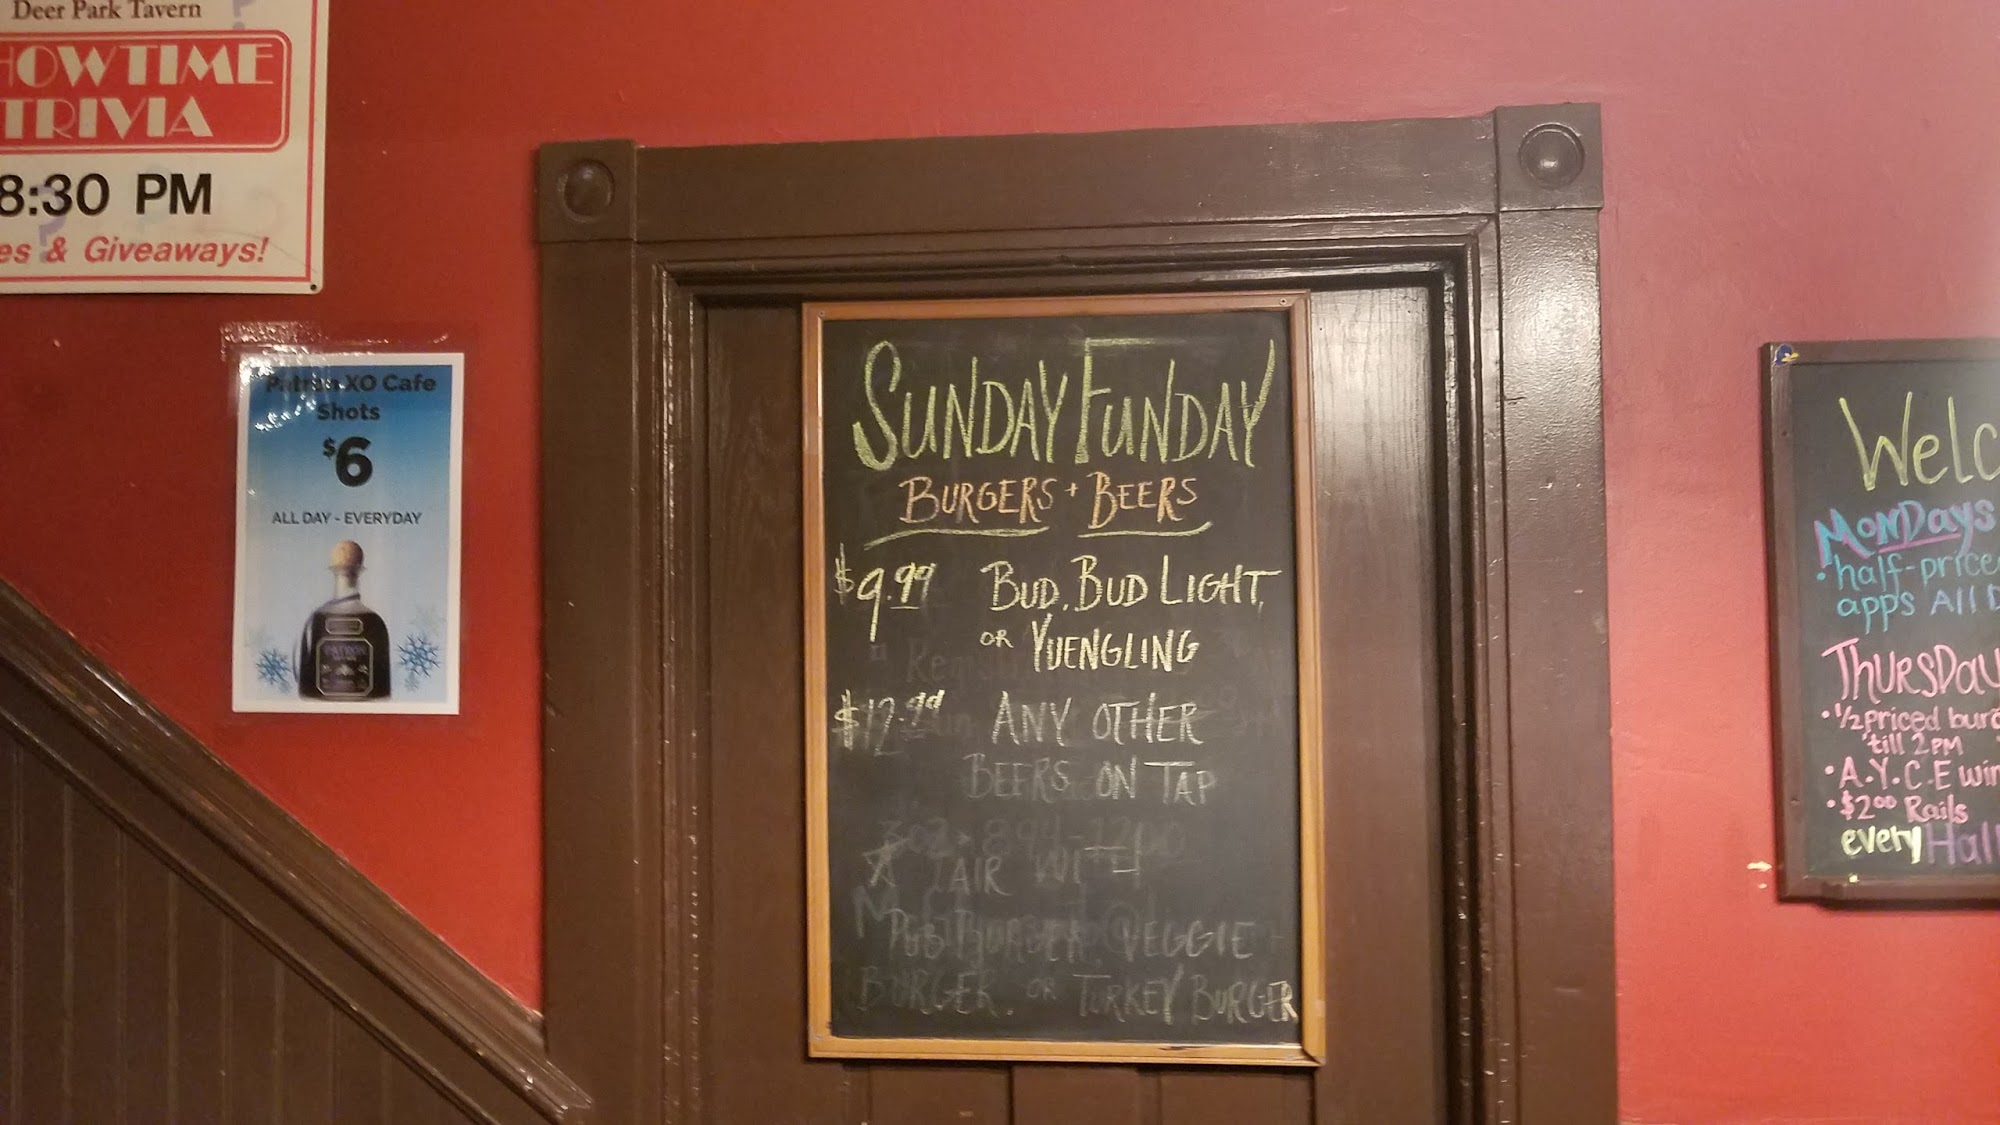 Deer Park Tavern
HOWTIME
TRIVIA
8:30 PM
es & Giveaways!
Patron XO Cafe
Shots
$6
ALL DAY - EVERYDAY
PATRON
SUNDAY FUNDAY
BURGERS + BEERS
$9.99 BUD, BUD LIGHT,
OR YUENGLING
$12.99 ANY OTHER
BEERS ON TAP
302-894-1200
PAIR WITH
PUB BURGER, VEGGIE
BURGER, OR TURKEY BURGER
Welc
MONDAYS
• half-price
apps All D
THURSDAY
• 1/2 priced bur
'till 2PM
• A.Y.C.E win
• $2.00 Rails
every Hal